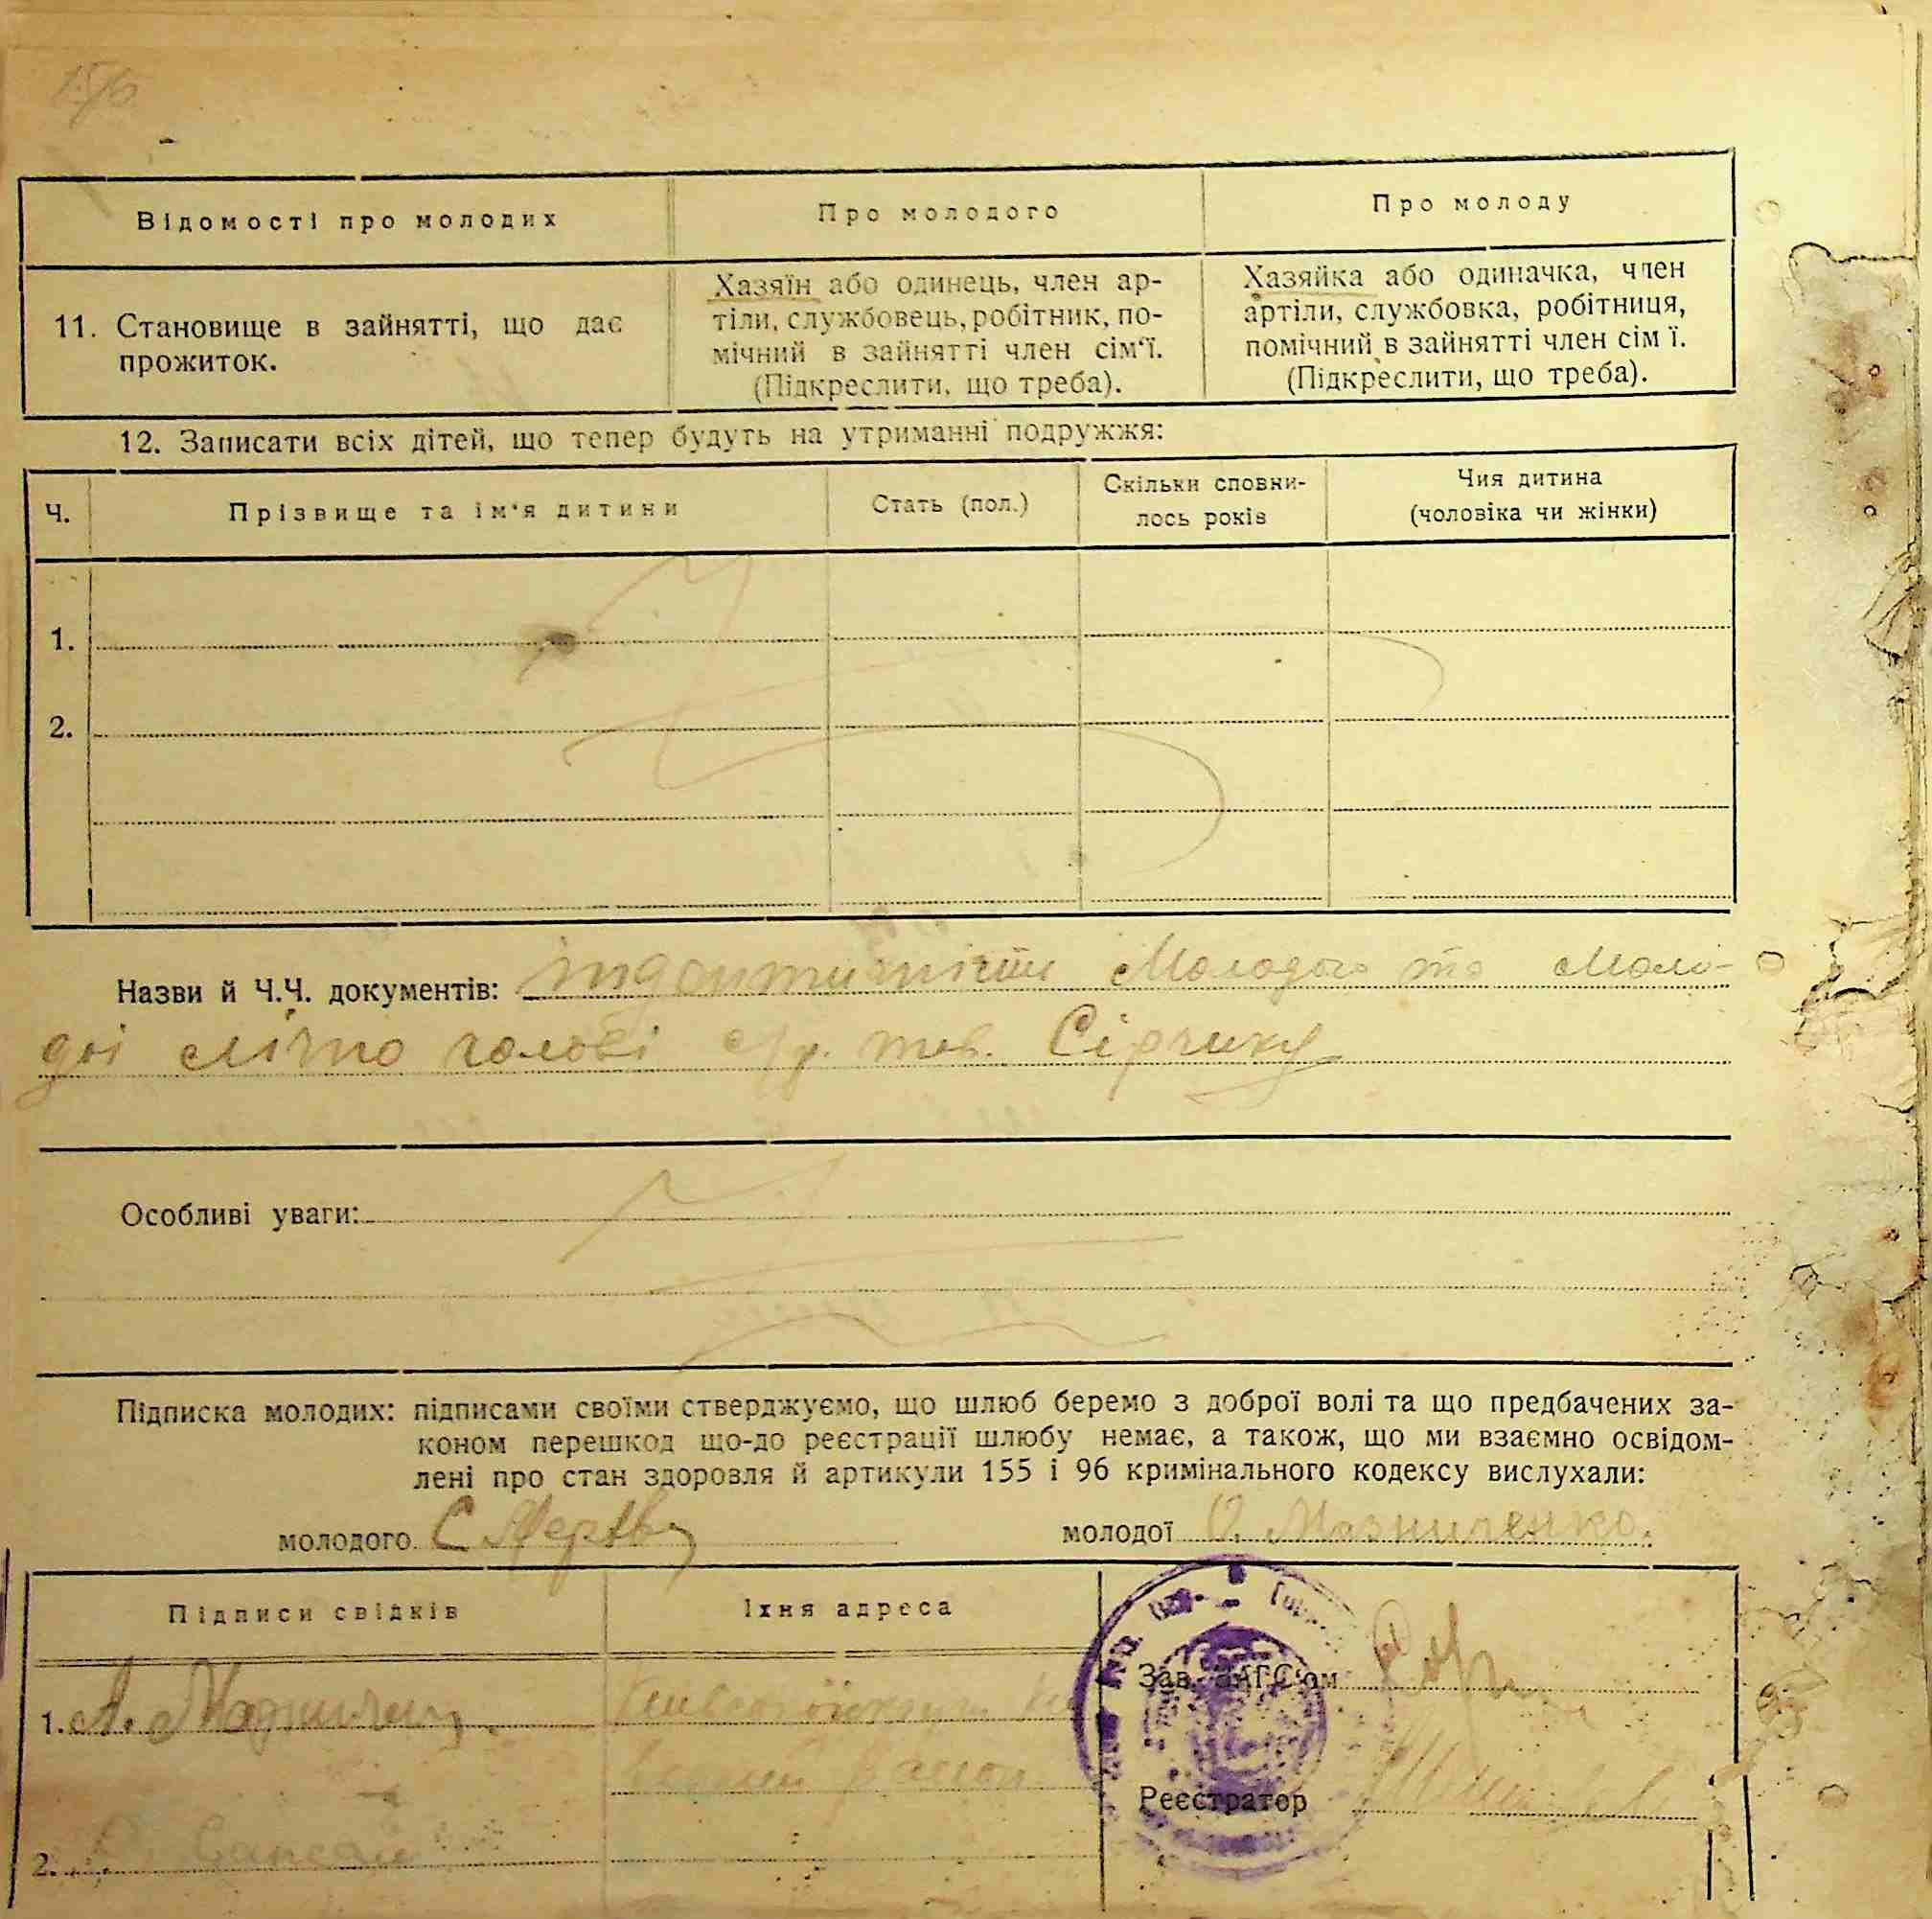 156
Відомості про молодих
Про молодого
Про молоду
11. Становище в зайнятті, що дає
прожиток.
Хазяїн або одинець, член ар-
тіли, службовець, робітник, по-
мічний в зайнятті член сім'ї.
(Підкреслити, що треба).
Хазяйка або одиначка, член
артіли, службовка, робітниця,
помічний в зайнятті член сім ї.
(Підкреслити, що треба).
12. Записати всіх дітей, що тепер будуть на утриманні подружжя:
Ч.
Прізвище та ім'я дитини
Стать (пол.)
Скільки сповни-
лось років
Чия дитина
(чоловіка чи жінки)
1.
2.
Назви й Ч.Ч. документів: Молодого та Моло-
дої голові с/р. тов. Сірчику
Особливі уваги:
Підписка молодих: підписами своїми стверджуємо, що шлюб беремо з доброї волі та що предбачених за-
коном перешкод що-до реєстрації шлюбу немає, а також, що ми взаємно освідом-
лені про стан здоровля й артикули 155 і 96 кримінального кодексу вислухали:
молодого С
молодої О. Мазниченко.
Підписи свідків
Їхня адреса
Зав. ЗАГС'ом
1. А.
Реєстратор
2.